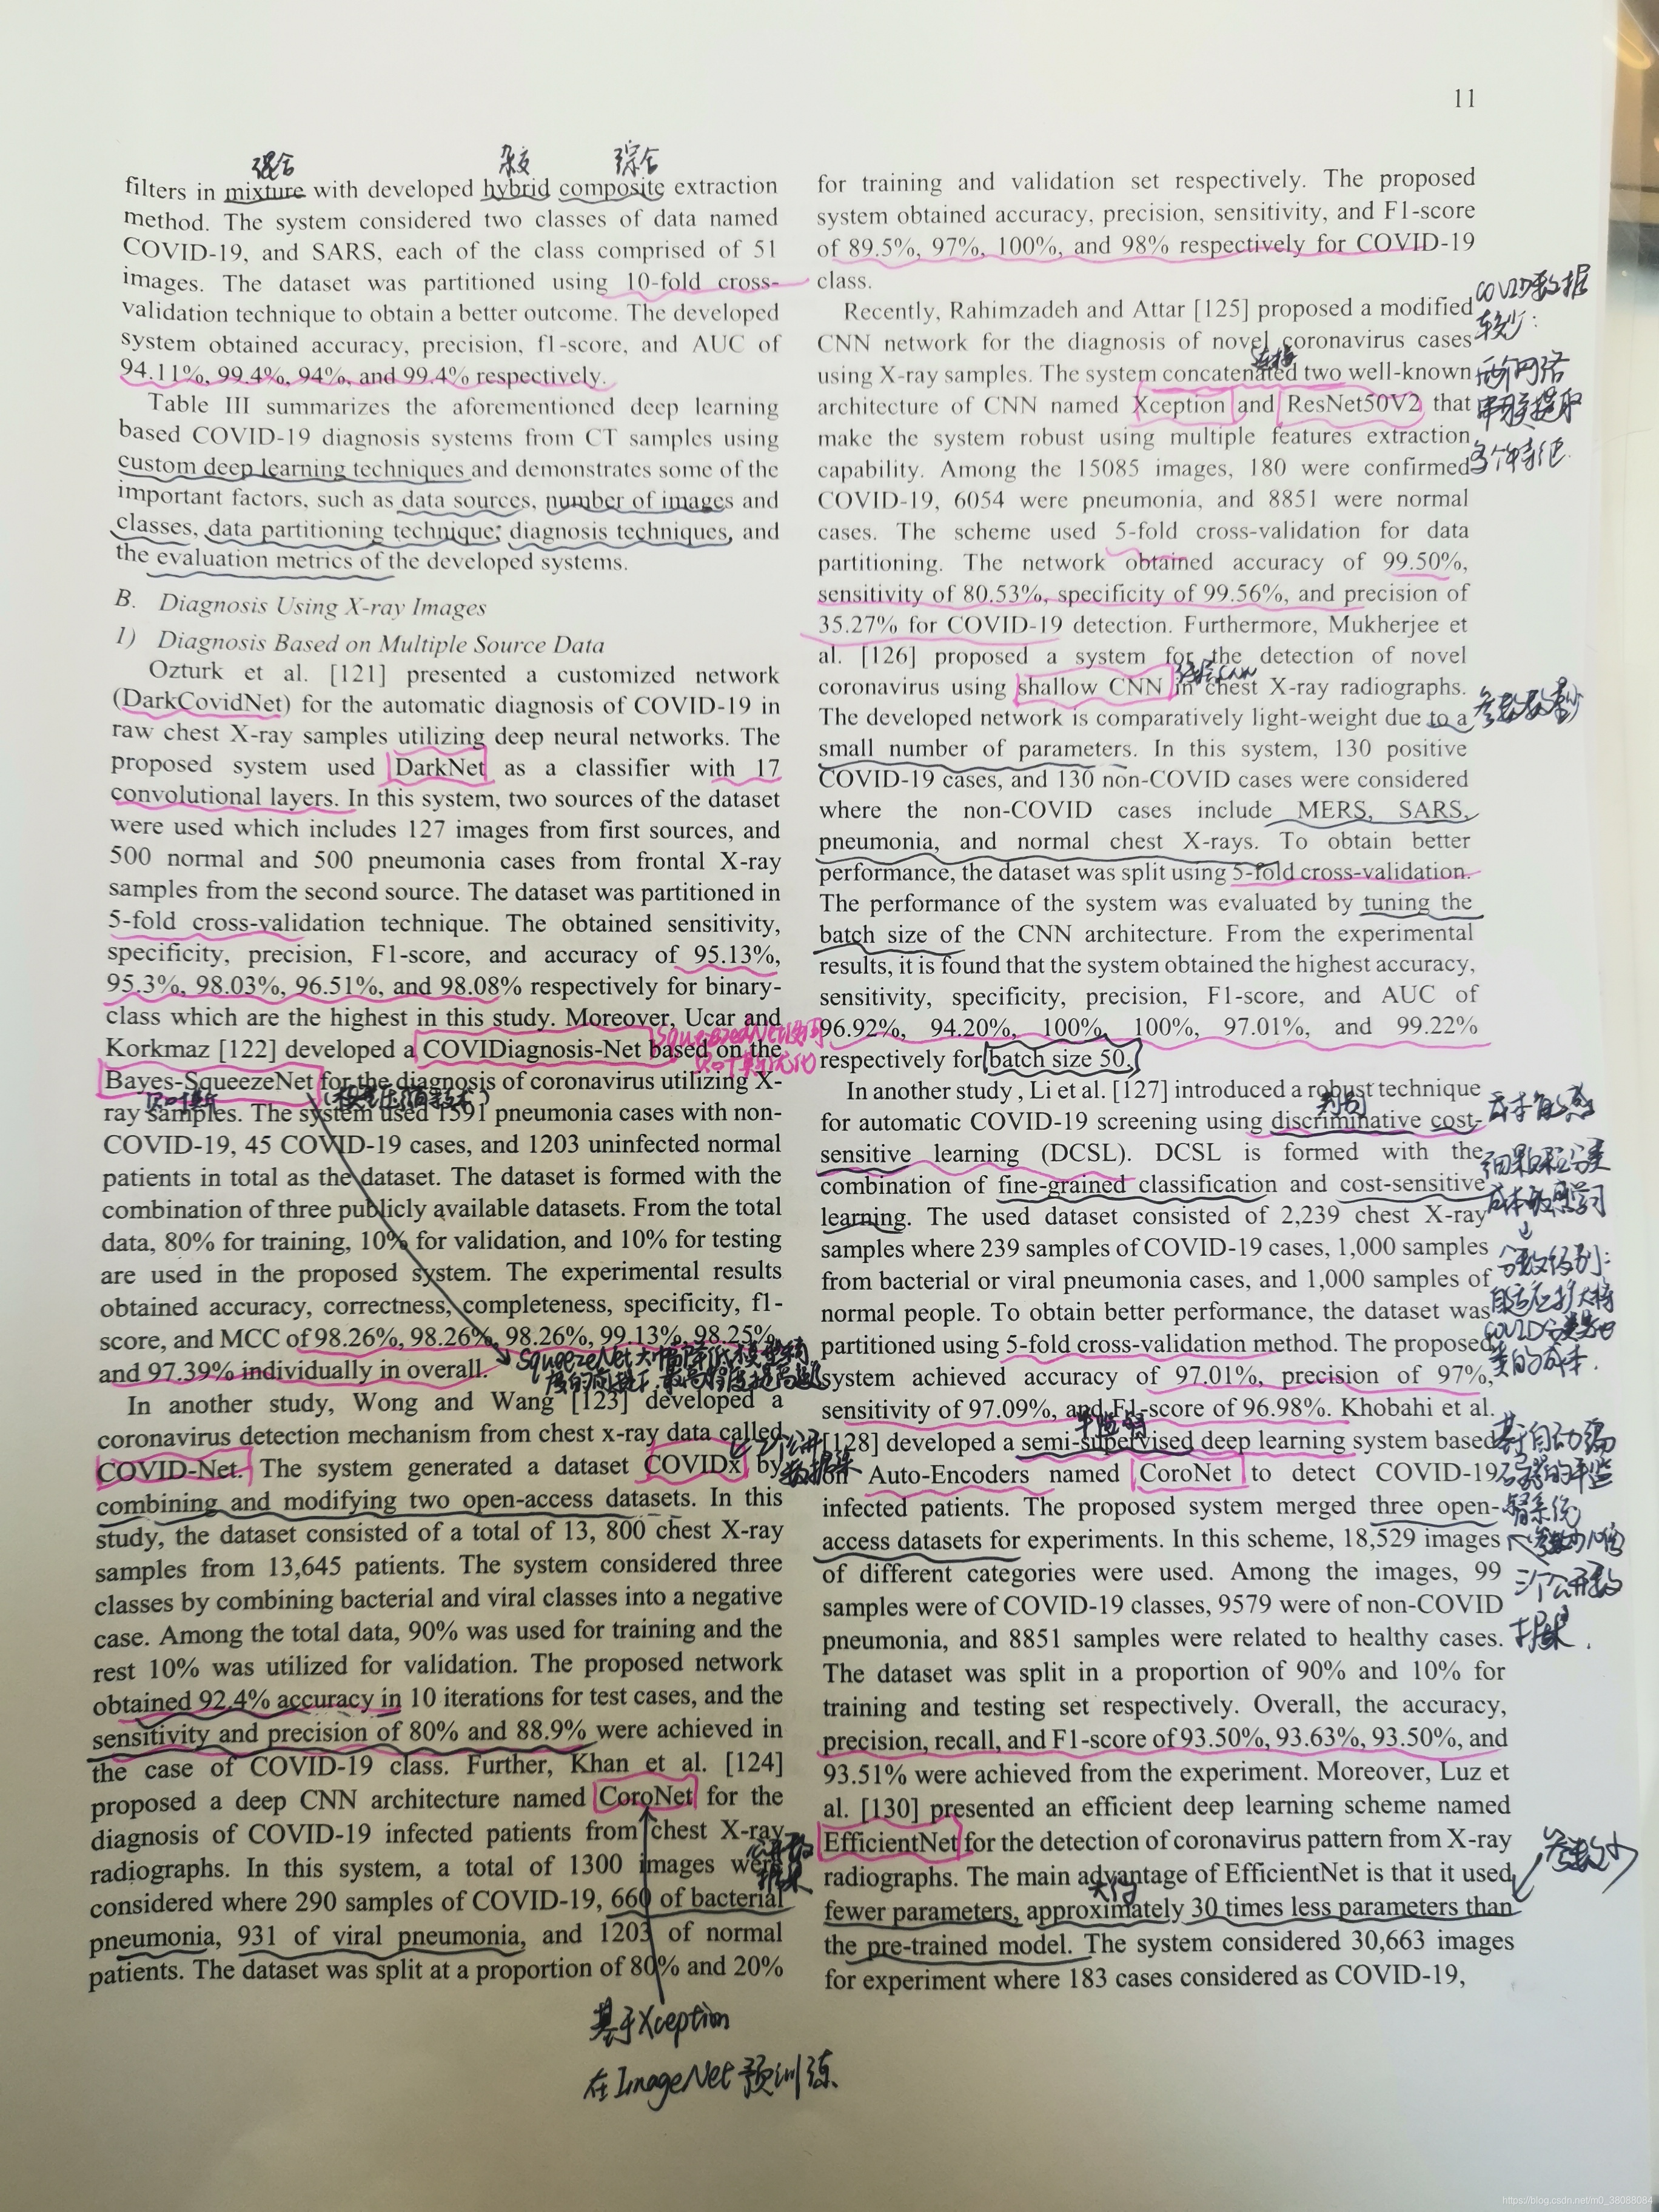 11
混合
杂交
综合
filters in mixture with developed hybrid composite extraction
method. The system considered two classes of data named
COVID-19, and SARS, each of the class comprised of 51
images. The dataset was partitioned using 10-fold cross-
validation technique to obtain a better outcome. The developed
system obtained accuracy, precision, f1-score, and AUC of
94.11%, 99.4%, 94%, and 99.4% respectively.
Table III summarizes the aforementioned deep learning
based COVID-19 diagnosis systems from CT samples using
custom deep learning techniques and demonstrates some of the
important factors, such as data sources, number of images and
classes, data partitioning technique, diagnosis techniques, and
the evaluation metrics of the developed systems.
B. Diagnosis Using X-ray Images
1) Diagnosis Based on Multiple Source Data
Ozturk et al. [121] presented a customized network
(DarkCovidNet) for the automatic diagnosis of COVID-19 in
raw chest X-ray samples utilizing deep neural networks. The
proposed system used DarkNet as a classifier with 17
convolutional layers. In this system, two sources of the dataset
were used which includes 127 images from first sources, and
500 normal and 500 pneumonia cases from frontal X-ray
samples from the second source. The dataset was partitioned in
5-fold cross-validation technique. The obtained sensitivity,
specificity, precision, F1-score, and accuracy of 95.13%,
95.3%, 98.03%, 96.51%, and 98.08% respectively for binary-
class which are the highest in this study. Moreover, Ucar and
Korkmaz [122] developed a COVIDiagnosis-Net based on the
Bayes-SqueezeNet for the diagnosis of coronavirus utilizing X-
ray samples. The system used 1591 pneumonia cases with non-
COVID-19, 45 COVID-19 cases, and 1203 uninfected normal
patients in total as the dataset. The dataset is formed with the
combination of three publicly available datasets. From the total
data, 80% for training, 10% for validation, and 10% for testing
are used in the proposed system. The experimental results
obtained accuracy, correctness, completeness, specificity, f1-
score, and MCC of 98.26%, 98.26%, 98.26%, 99.13%, 98.25%,
and 97.39% individually in overall.
In another study, Wong and Wang [123] developed a
coronavirus detection mechanism from chest x-ray data called
COVID-Net. The system generated a dataset COVIDx by
combining and modifying two open-access datasets. In this
study, the dataset consisted of a total of 13, 800 chest X-ray
samples from 13,645 patients. The system considered three
classes by combining bacterial and viral classes into a negative
case. Among the total data, 90% was used for training and the
rest 10% was utilized for validation. The proposed network
obtained 92.4% accuracy in 10 iterations for test cases, and the
sensitivity and precision of 80% and 88.9% were achieved in
the case of COVID-19 class. Further, Khan et al. [124]
proposed a deep CNN architecture named CoroNet for the
diagnosis of COVID-19 infected patients from chest X-ray
radiographs. In this system, a total of 1300 images were
considered where 290 samples of COVID-19, 660 of bacterial
pneumonia, 931 of viral pneumonia, and 1203 of normal
patients. The dataset was split at a proportion of 80% and 20%
基于Xception
在ImageNet预训练
for training and validation set respectively. The proposed
system obtained accuracy, precision, sensitivity, and F1-score
of 89.5%, 97%, 100%, and 98% respectively for COVID-19
class.
Recently, Rahimzadeh and Attar [125] proposed a modified
CNN network for the diagnosis of novel coronavirus cases
连接
using X-ray samples. The system concatenated two well-known
architecture of CNN named Xception and ResNet50V2 that
make the system robust using multiple features extraction
capability. Among the 15085 images, 180 were confirmed
COVID-19, 6054 were pneumonia, and 8851 were normal
cases. The scheme used 5-fold cross-validation for data
partitioning. The network obtained accuracy of 99.50%,
sensitivity of 80.53%, specificity of 99.56%, and precision of
35.27% for COVID-19 detection. Furthermore, Mukherjee et
al. [126] proposed a system for the detection of novel
coronavirus using shallow CNN in chest X-ray radiographs.
The developed network is comparatively light-weight due to a
small number of parameters. In this system, 130 positive
COVID-19 cases, and 130 non-COVID cases were considered
where the non-COVID cases include MERS, SARS,
pneumonia, and normal chest X-rays. To obtain better
performance, the dataset was split using 5-fold cross-validation.
The performance of the system was evaluated by tuning the
batch size of the CNN architecture. From the experimental
results, it is found that the system obtained the highest accuracy,
sensitivity, specificity, precision, F1-score, and AUC of
96.92%, 94.20%, 100%, 100%, 97.01%, and 99.22%
respectively for batch size 50.
In another study , Li et al. [127] introduced a robust technique
for automatic COVID-19 screening using discriminative cost-
sensitive learning (DCSL). DCSL is formed with the
combination of fine-grained classification and cost-sensitive
learning. The used dataset consisted of 2,239 chest X-ray
samples where 239 samples of COVID-19 cases, 1,000 samples
from bacterial or viral pneumonia cases, and 1,000 samples of
normal people. To obtain better performance, the dataset was
partitioned using 5-fold cross-validation method. The proposed
system achieved accuracy of 97.01%, precision of 97%,
sensitivity of 97.09%, and F1-score of 96.98%. Khobahi et al.
半监督
[128] developed a semi-supervised deep learning system based
on Auto-Encoders named CoroNet to detect COVID-19
infected patients. The proposed system merged three open-
access datasets for experiments. In this scheme, 18,529 images
of different categories were used. Among the images, 99
samples were of COVID-19 classes, 9579 were of non-COVID
pneumonia, and 8851 samples were related to healthy cases.
The dataset was split in a proportion of 90% and 10% for
training and testing set respectively. Overall, the accuracy,
precision, recall, and F1-score of 93.50%, 93.63%, 93.50%, and
93.51% were achieved from the experiment. Moreover, Luz et
al. [130] presented an efficient deep learning scheme named
EfficientNet for the detection of coronavirus pattern from X-ray
radiographs. The main advantage of EfficientNet is that it used
大约
fewer parameters, approximately 30 times less parameters than
the pre-trained model. The system considered 30,663 images
for experiment where 183 cases considered as COVID-19,
COVID数据
较少：
两个网络
串联提取
多个特征
参数数量少
参数少
https://blog.csdn.net/m0_38088084